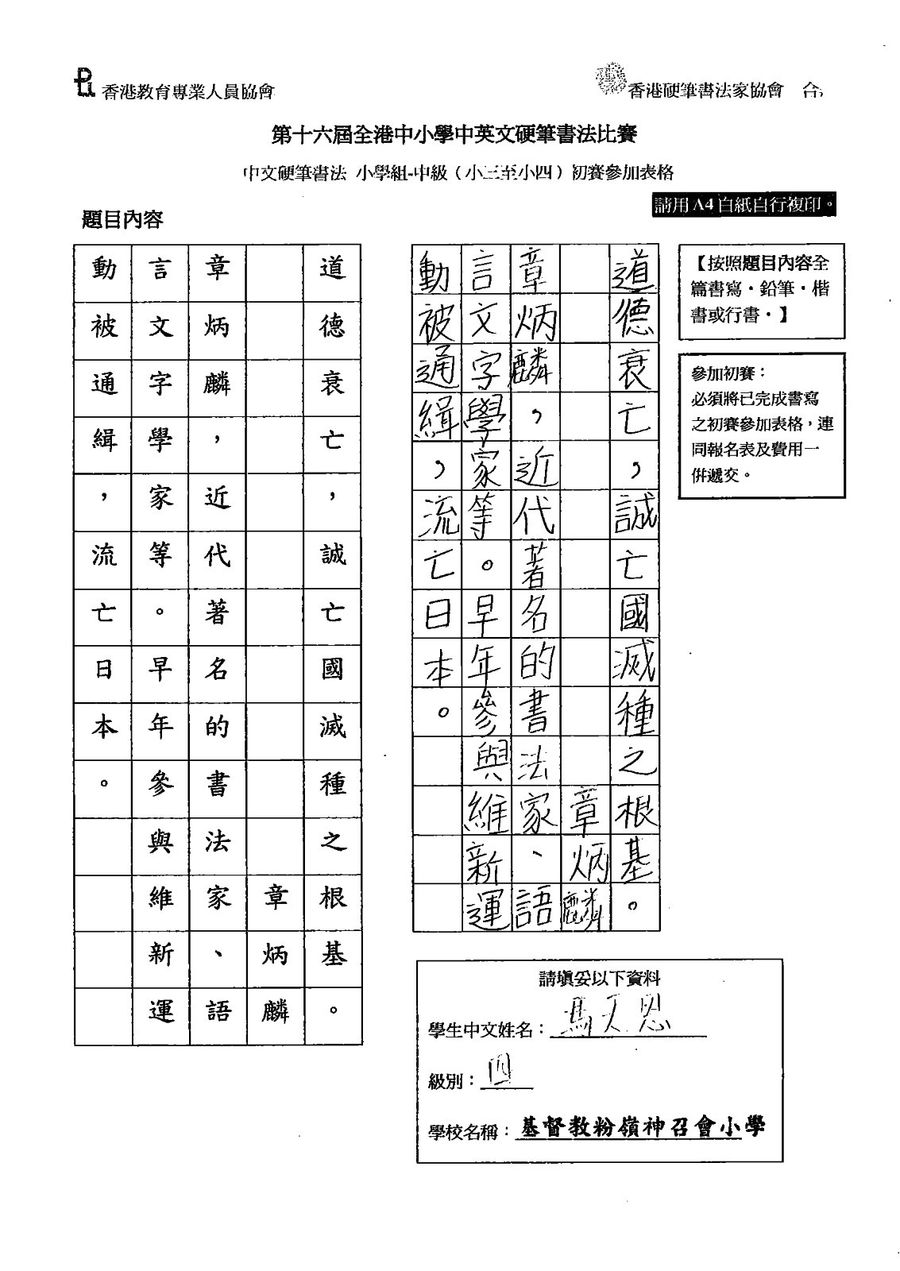 香港教育專業人員協會
香港硬筆書法家協會 合
第十六屆全港中小學中英文硬筆書法比賽
中文硬筆書法 小學組-中級（小三至小四）初賽參加表格
請用 A4 白紙自行複印。
題目內容
道德衰亡，誠亡國滅種之根基。
章炳麟
章炳麟，近代著名的書法家、語
言文字學家等。早年參與維新運
動被通緝，流亡日本。
道德衰亡，誠亡國滅種之根基。
章炳麟
章炳麟，近代著名的書法家、語
言文字學家等。早年參與維新運
動被通緝，流亡日本。
【按照題目內容全
篇書寫，鉛筆，楷
書或行書。】
參加初賽：
必須將已完成書寫
之初賽參加表格，連
同報名表及費用一
併遞交。
請填妥以下資料
學生中文姓名：馬天恩
級別：四
學校名稱：基督教粉嶺神召會小學